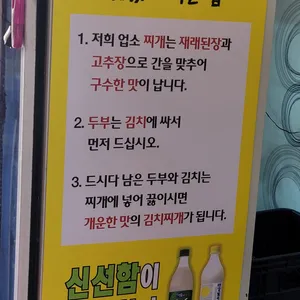 1. 저희 업소 찌개는 재래된장과
고추장으로 간을 맞추어
구수한 맛이 납니다.
2. 두부는 김치에 싸서
먼저 드십시오.
3. 드시다 남은 두부와 김치는
찌개에 넣어 끓이시면
개운한 맛의 김치찌개가 됩니다.
신선함이